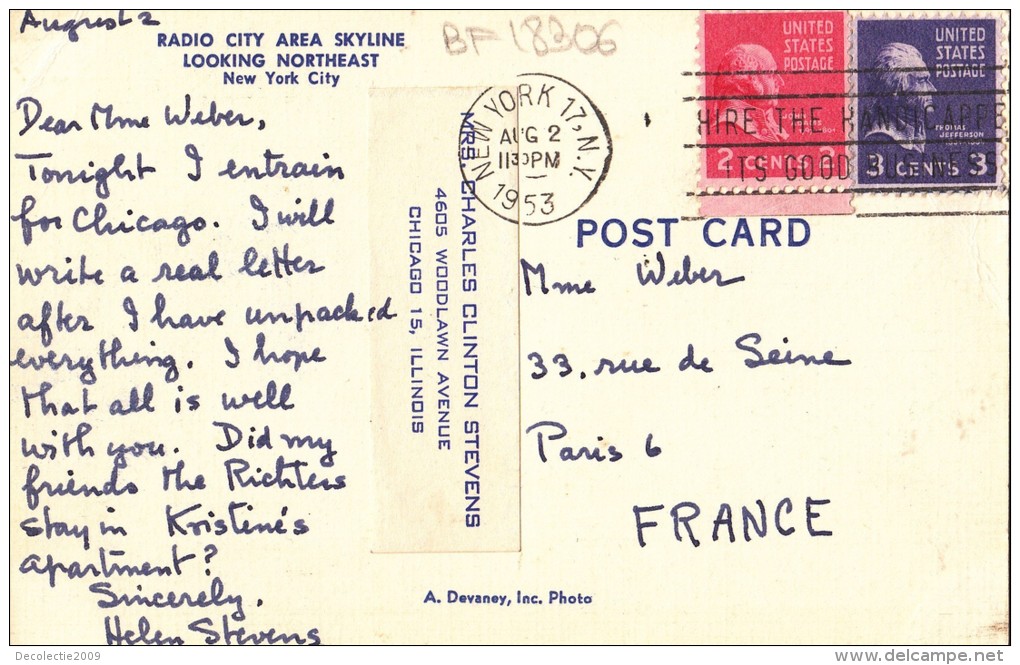 August 2
RADIO CITY AREA SKYLINE
LOOKING NORTHEAST
New York City
BF 18306
Dear Mme Weber,
Tonight I entrain
for Chicago. I will
write a real letter
after I have unpacked
everything. I hope
that all is well
with you. Did my
friends the Richters
stay in Kristine's
apartment?
Sincerely,
Helen Stevens
MRS. CHARLES CLINTON STEVENS
4605 WOODLAWN AVENUE
CHICAGO 15, ILLINOIS
NEW YORK 17, N.Y.
AUG 2
1130PM
1953
UNITED
STATES
POSTAGE
2 CENTS 2
UNITED
STATES
POSTAGE
THOMAS
JEFFERSON
3 CENTS 3
HIRE THE HANDICAPPED
ITS GOOD BUSINESS
POST CARD
Mme Weber
33, rue de Seine
Paris 6
FRANCE
A. Devaney, Inc. Photo
Decolectie2009
delcampe.net